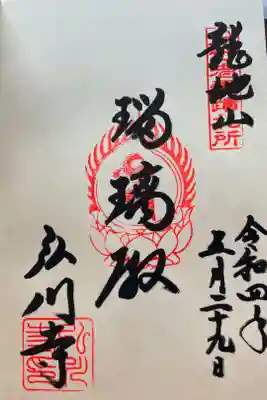 龍池山
瑠璃殿
弘川寺
令和四年
五月二十九日